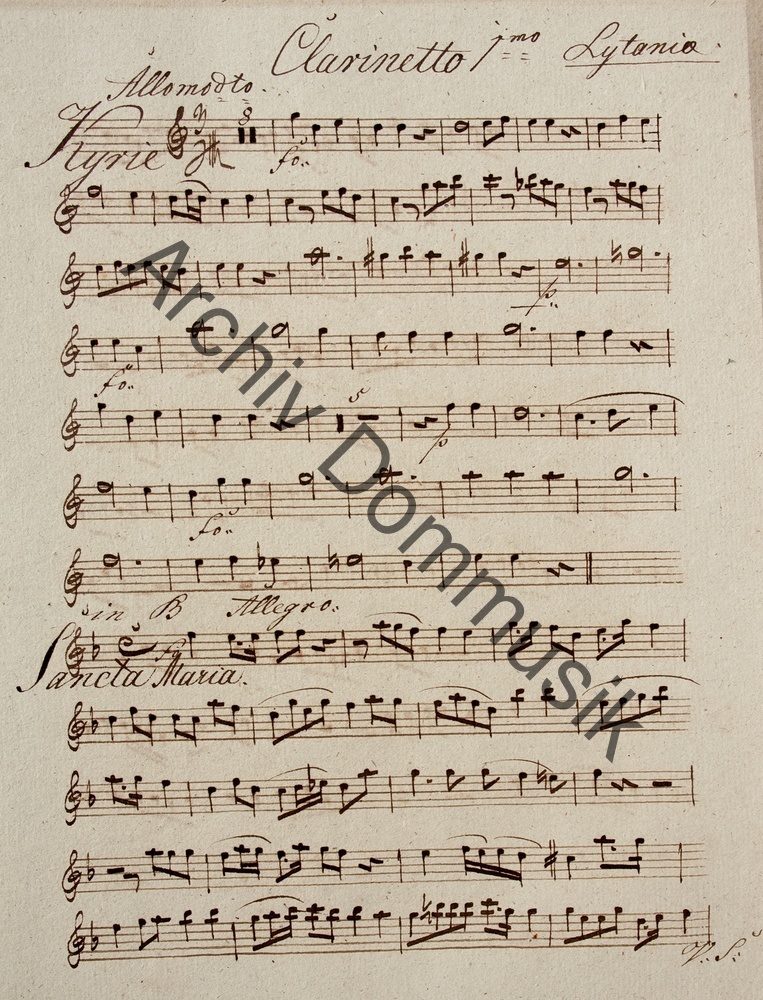 Clarinetto 1mo Lytaniæ.
Allo modto.
Kyrie 8 fo:
p:
fo:
5
p
fo:
in B Allegro:
Sancta Maria. fo
V: S:
Archiv Dommusik